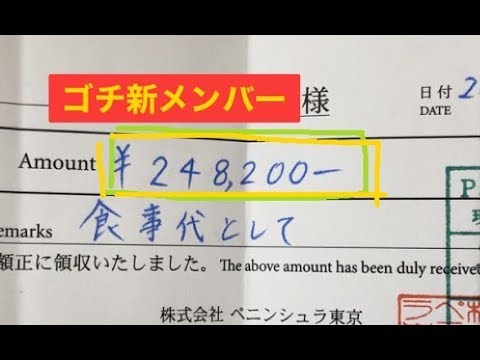 ゴチ新メンバー 様 日付 2
DATE
Amount ¥248,200-
emarks 食事代として
額正に領収いたしました。The above amount has been duly receive
株式会社 ペニンシュラ東京
P